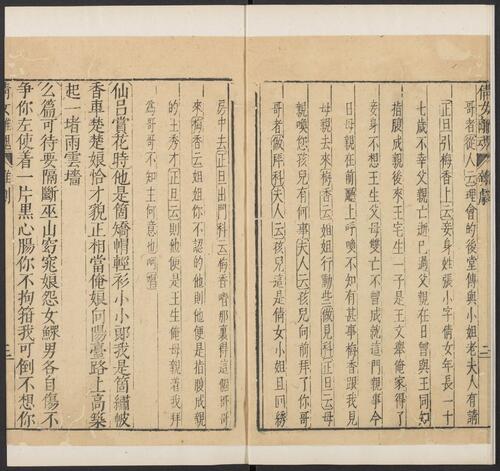 倩女離魂 雜劇 二
哥哥者從人云理會的後堂傳與小姐老夫人有請
正旦引梅香上云妾身姓張小字倩女年長一十
七歲不幸父親亡逝已過父親在日曾與王同知
指腹成親後來王宅生一子是王文舉俺家得了
妾身不想王生父母雙亡不曾成就這門親事今
日母親在前廳上呼喚不知有甚事梅香跟我見
母親去來梅香云姐姐行動些做見科正旦云母
親喚您孩兒有何事夫人云孩兒向前拜了你哥
哥者做拜科夫人云孩兒這是倩女小姐且回綉
房中去正旦出門科云梅香咱那裏得這個哥哥
來梅香云姐姐你不認的他則他便是指腹成親
的王秀才正旦云則他便是王生俺母親着我拜
為哥哥不知主何意也呵唱
仙呂賞花時他是箇矯帽輕衫小小郎我是箇繡帔
香車楚楚娘恰才貌正相當俺娘向陽臺路上高築
起一堵雨雲墻
么篇可待要隔斷巫山窈窕娘怨女鰥男各自傷不
爭你左使着一片黑心腸你不拘箝我可倒不想你
倩女離魂 雜劇 二